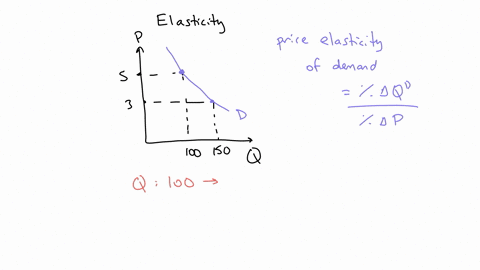 Elasticity
P
5
3
D
100 150
Q
price elasticity
of demand
= % Δ Q^D
% Δ P
Q : 100 →